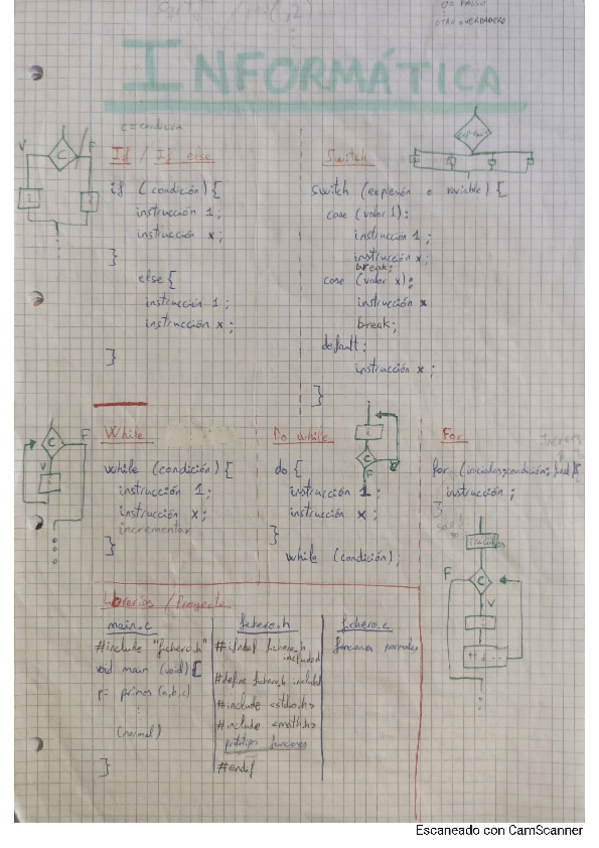 0= FALSO
OTRO=VERDADERO
INFORMÁTICA
c = condición
If / If else
if (condición) {
instrucción 1;
instrucción x;
}
else {
instrucción 1;
instrucción x;
}
V
C
F
1
2
Switch
switch (expresión o variable) {
case (valor 1):
instrucción 1;
instrucción x;
break;
case (valor x):
instrucción x
break;
default:
instrucción x;
}
While
while (condición) {
instrucción 1;
instrucción x;
incrementar
}
C
F
V
Do while
do {
instrucción 1;
instrucción x;
}
while (condición);
C
F
For
instrucción ;
}
F
C
V
Librerías / Proyecto
main.c
#include "fichero.h"
void main (void) {
p= primos (a,b,c)
(normal)
}
fichero.h
#ifndef fichero_h
included
#define fichero_h included
#include <stdio.h>
#include <math.h>
prototipo funciones
#endif
fichero.c
funciones normales
Escaneado con CamScanner